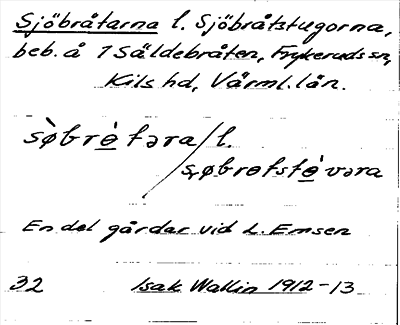 Sjöbråtarna l. Sjöbråtstugorna,
beb. å 1 Säldebråten, Frykeruds sn,
Kils hd, Värml. län.
sø̀brɵ̀təra/l.
søbrɵtstɵ̀vəra
En del gårdar vid L. Emsen
32 Isak Wallin 1912-13